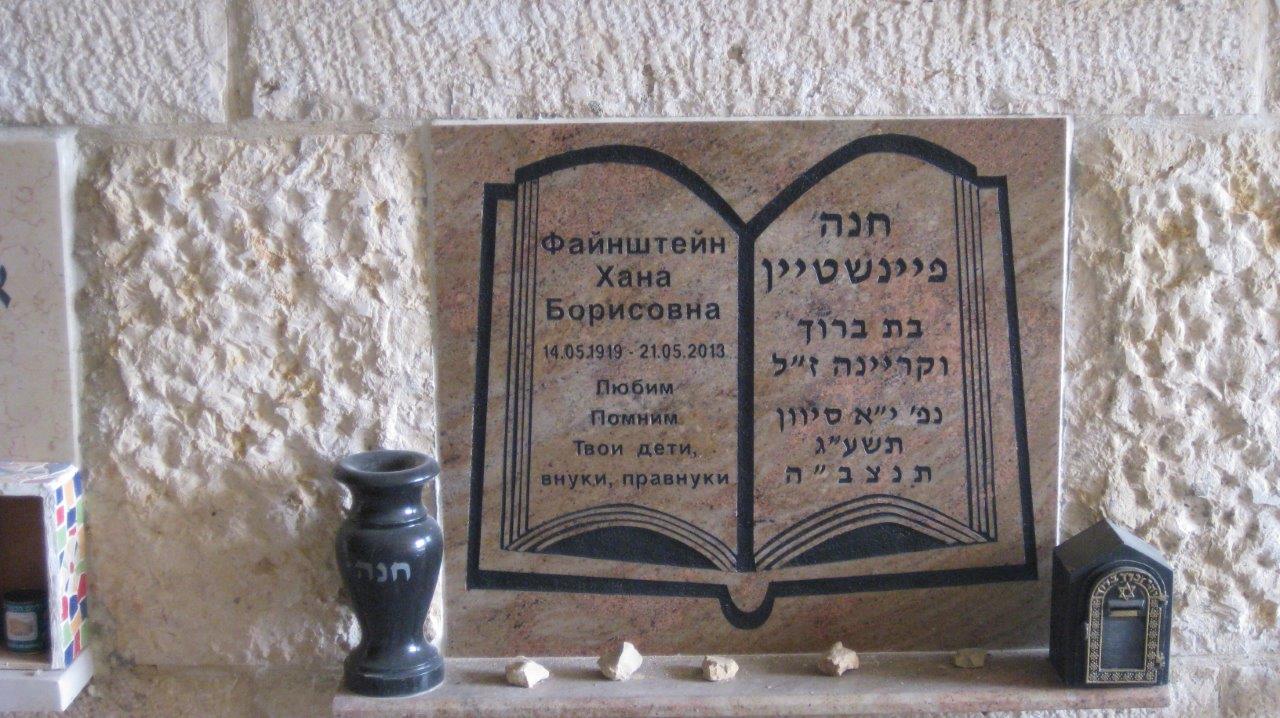 Файнштейн
Хана
Борисовна
14.05.1919 - 21.05.2013
Любим
Помним
Твои дети,
внуки, правнуки
חנה
פיינשטיין
בת ברוך
וקריינה ז״ל
נפ׳ י״א סיוון
תשע״ג
ת נ צ ב ״ ה
חנה